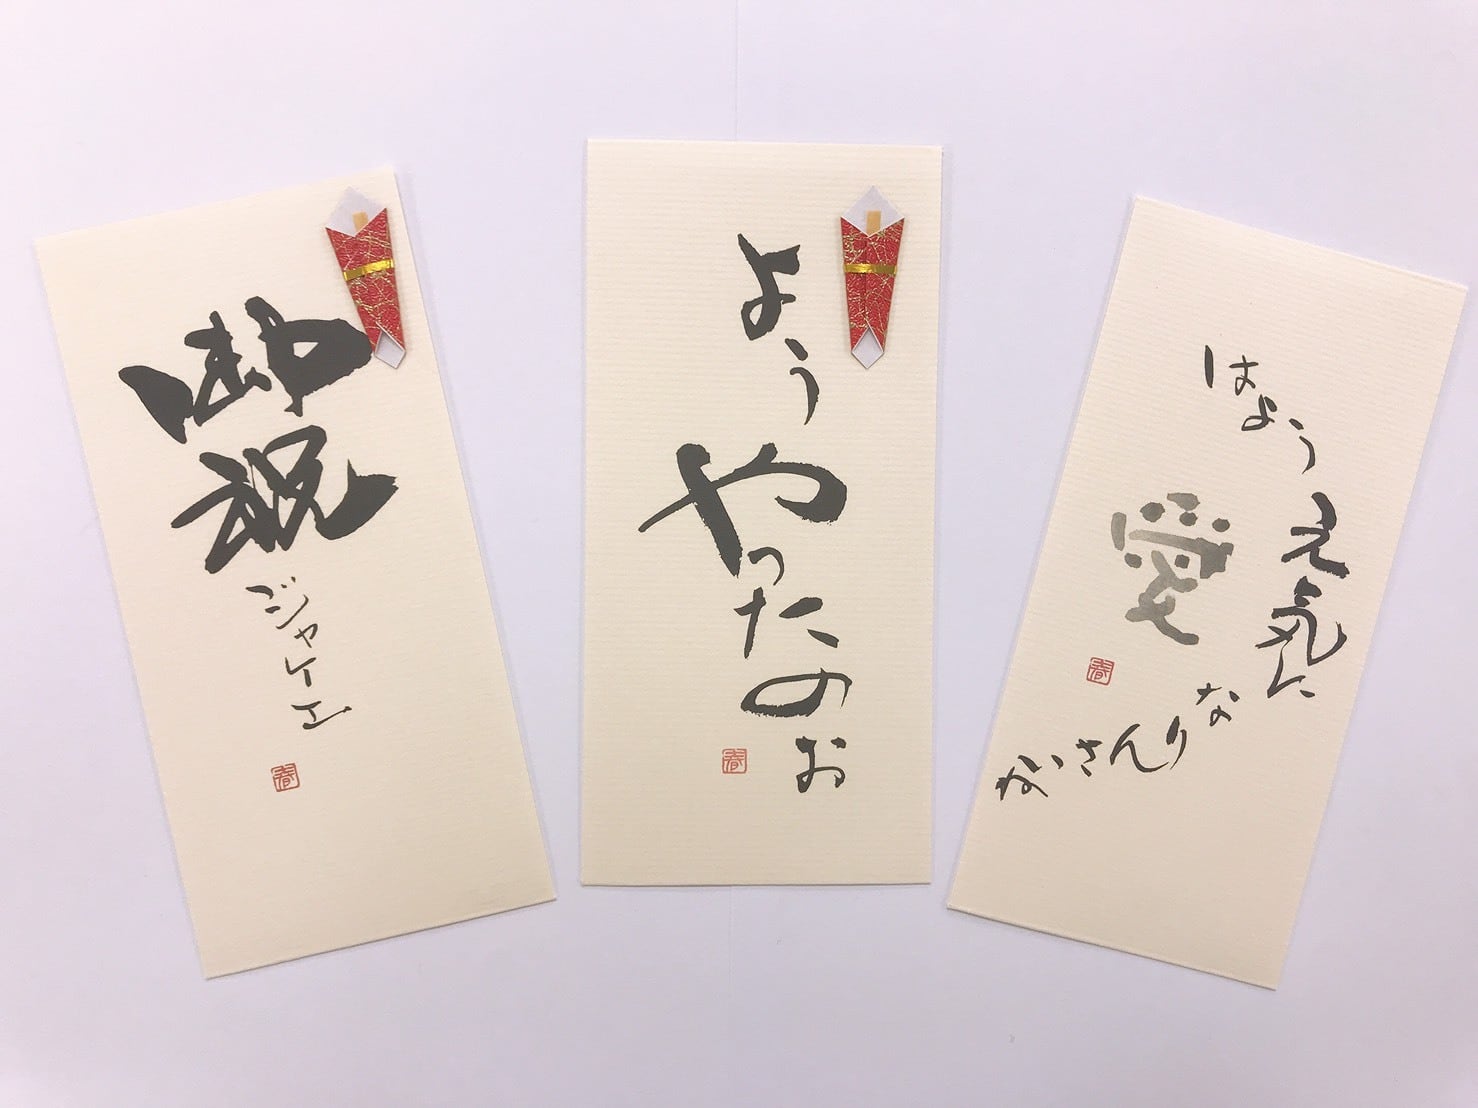 御祝
ジャケエ
春
よう
やったのぉ
春
はよう
元気に
な
かいさんりな
愛
春